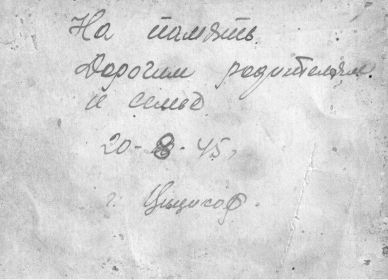 На память.
Дорогим родителям
и семье
20-8-45,
г.